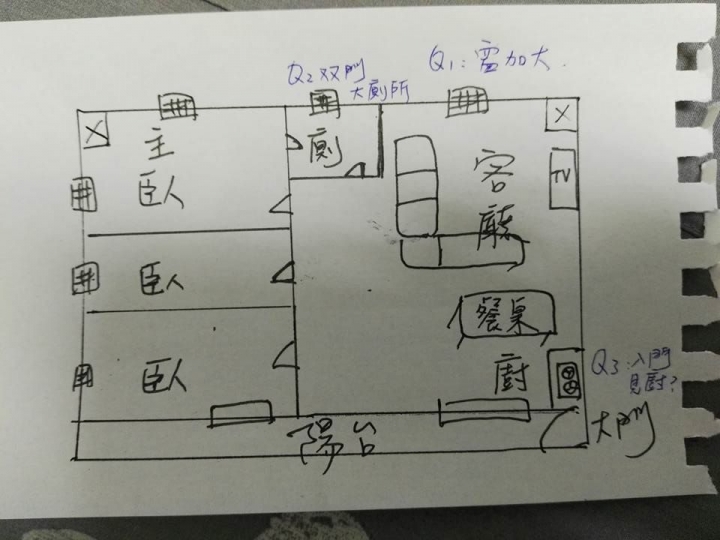 Q1:需加大.
Q2双門
大廁所
X
主
臥
廁
客
廳
X
TV
臥
餐桌
臥
廚
Q3:入門
見廚?
大門
陽台